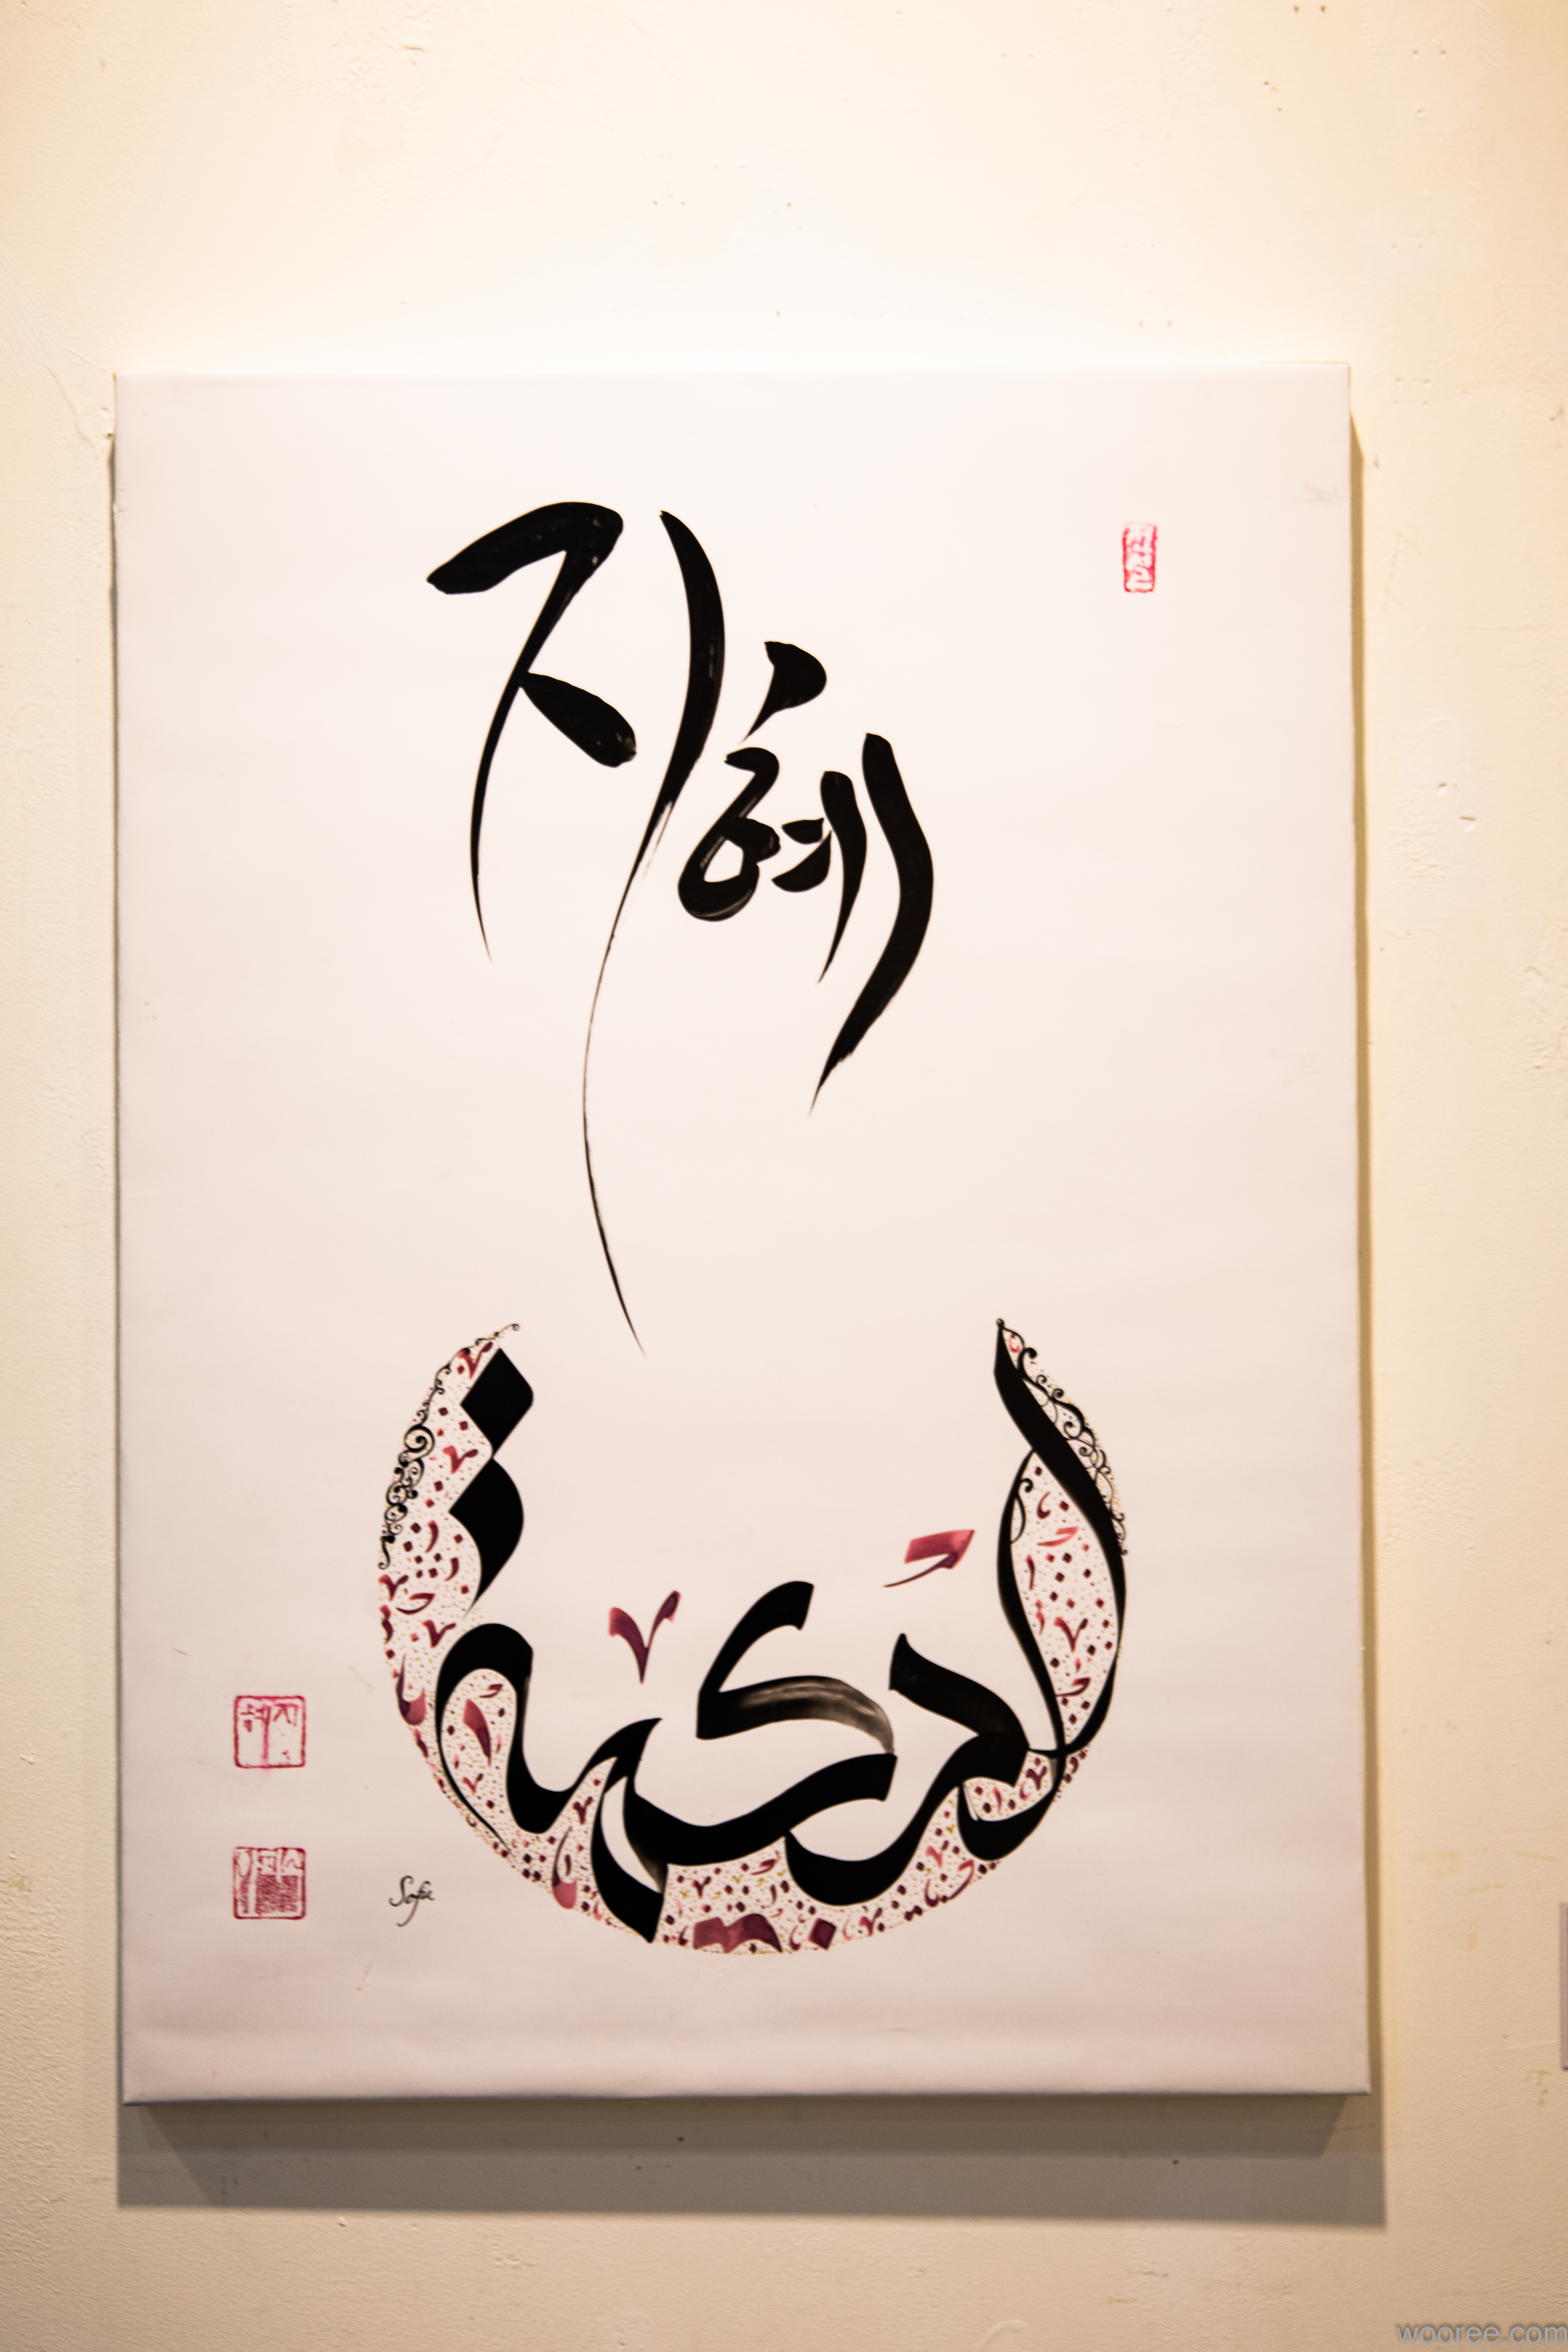 지혜
الحكمة
지혜
Sofia
wooree.com